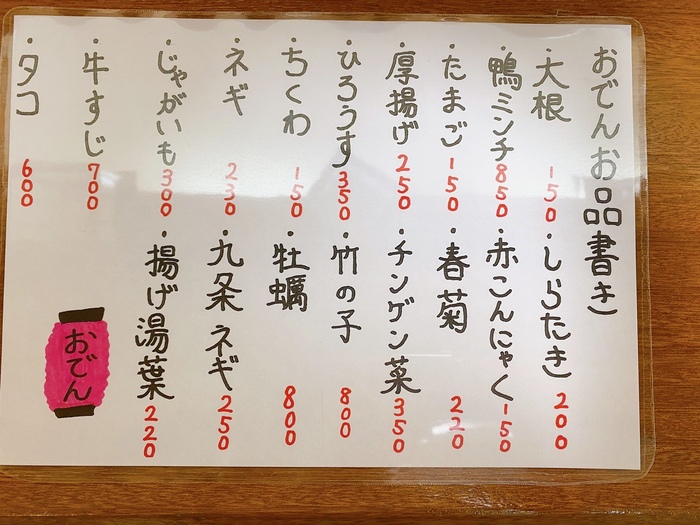 おでんお品書き
・大根 150
・しらたき 200
・鴨ミンチ 850
・赤こんにゃく 150
・たまご 150
・春菊 220
・厚揚げ 250
・チンゲン菜 350
・ひろうす 350
・竹の子 800
・ちくわ 150
・牡蠣 800
・ネギ 230
・九条ネギ 250
・じゃがいも 300
・揚げ湯葉 220
・牛すじ 700
・タコ 600
おでん